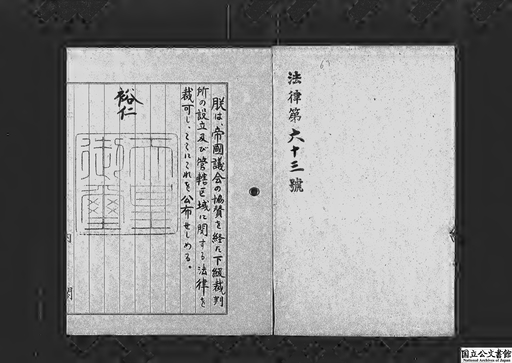 法律第六十三號
朕は、帝國議会の協賛を経た下級裁判
所の設立及び管轄区域に関する法律を
裁可し、ここにこれを公布せしめる。
裕仁
天皇
御璽
国立公文書館
National Archives of Japan